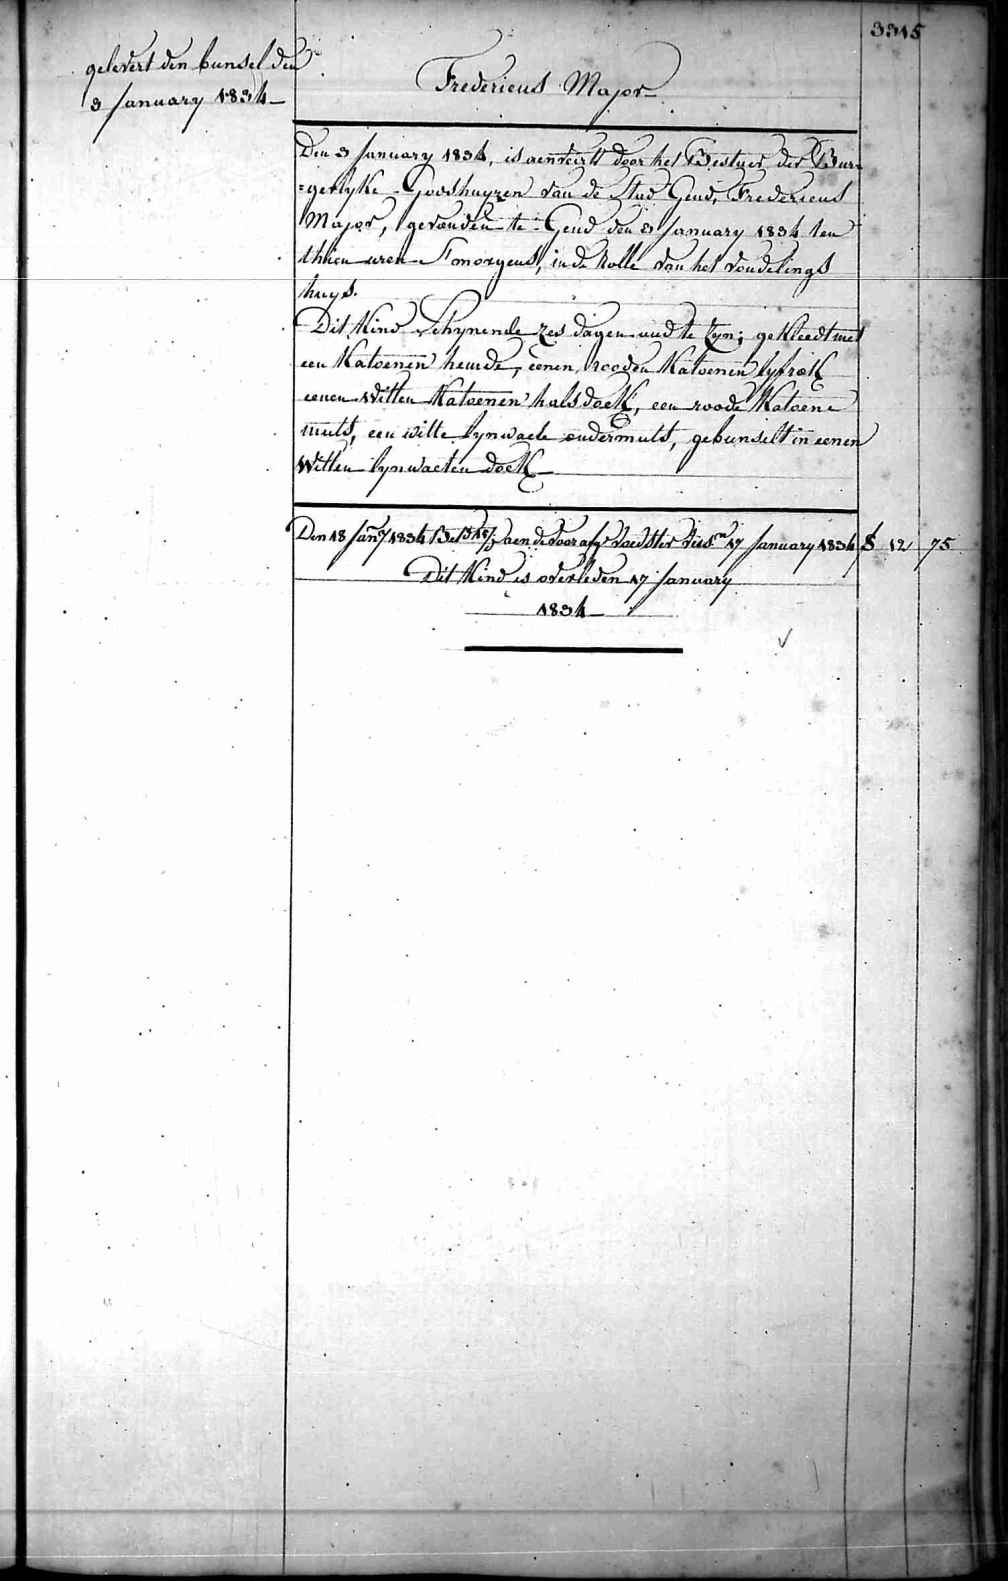 3315
gelevert den bunsel den
3 January 1834
Fredericus Major
Den 3 January 1834, is aenveirt door het Bestuer der Bur=
=gerlyke Godshuyzen van de Stad Gend, Fredericus
Major, gevonden te Gend den 3 January 1834 ten
thien uren 'smorgens, in de Rolle van het vondelings
huys.
Dit Kind schynende zes dagen oud te zyn; gekleedt met
een Katoenen hemde, eenen rooden Katoenen lyfrok
eenen witten Katoenen halsdoek, een roode Katoene
muts, een witte lynwaete ondermuts, gebunselt in eenen
witten lynwaeten doek
Den 18 Jany 1834 aen de voorafg voedster 17 January 1834 12 75
Dit Kind is overleden 17 January
1834